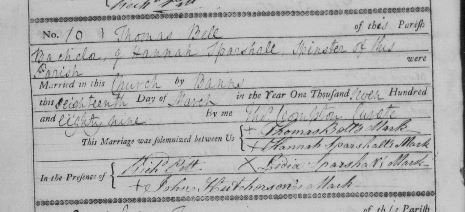 No. 10 } Thomas Bell of this Parish
Bachelor, & Hannah Sparshall, Spinster of this
Parish were
Married in this Church by Banns
this eighteenth Day of March in the Year One Thousand Seven Hundred
and eighty nine by me Curate
This Marriage was solemnized between Us { + Thomas Bell's Mark
+ Hannah Sparshall's Mark
In the Presence of { Rich. Pett X Lydia Sparshall's Mark
+ John Hutcherson's Mark
of this Parish